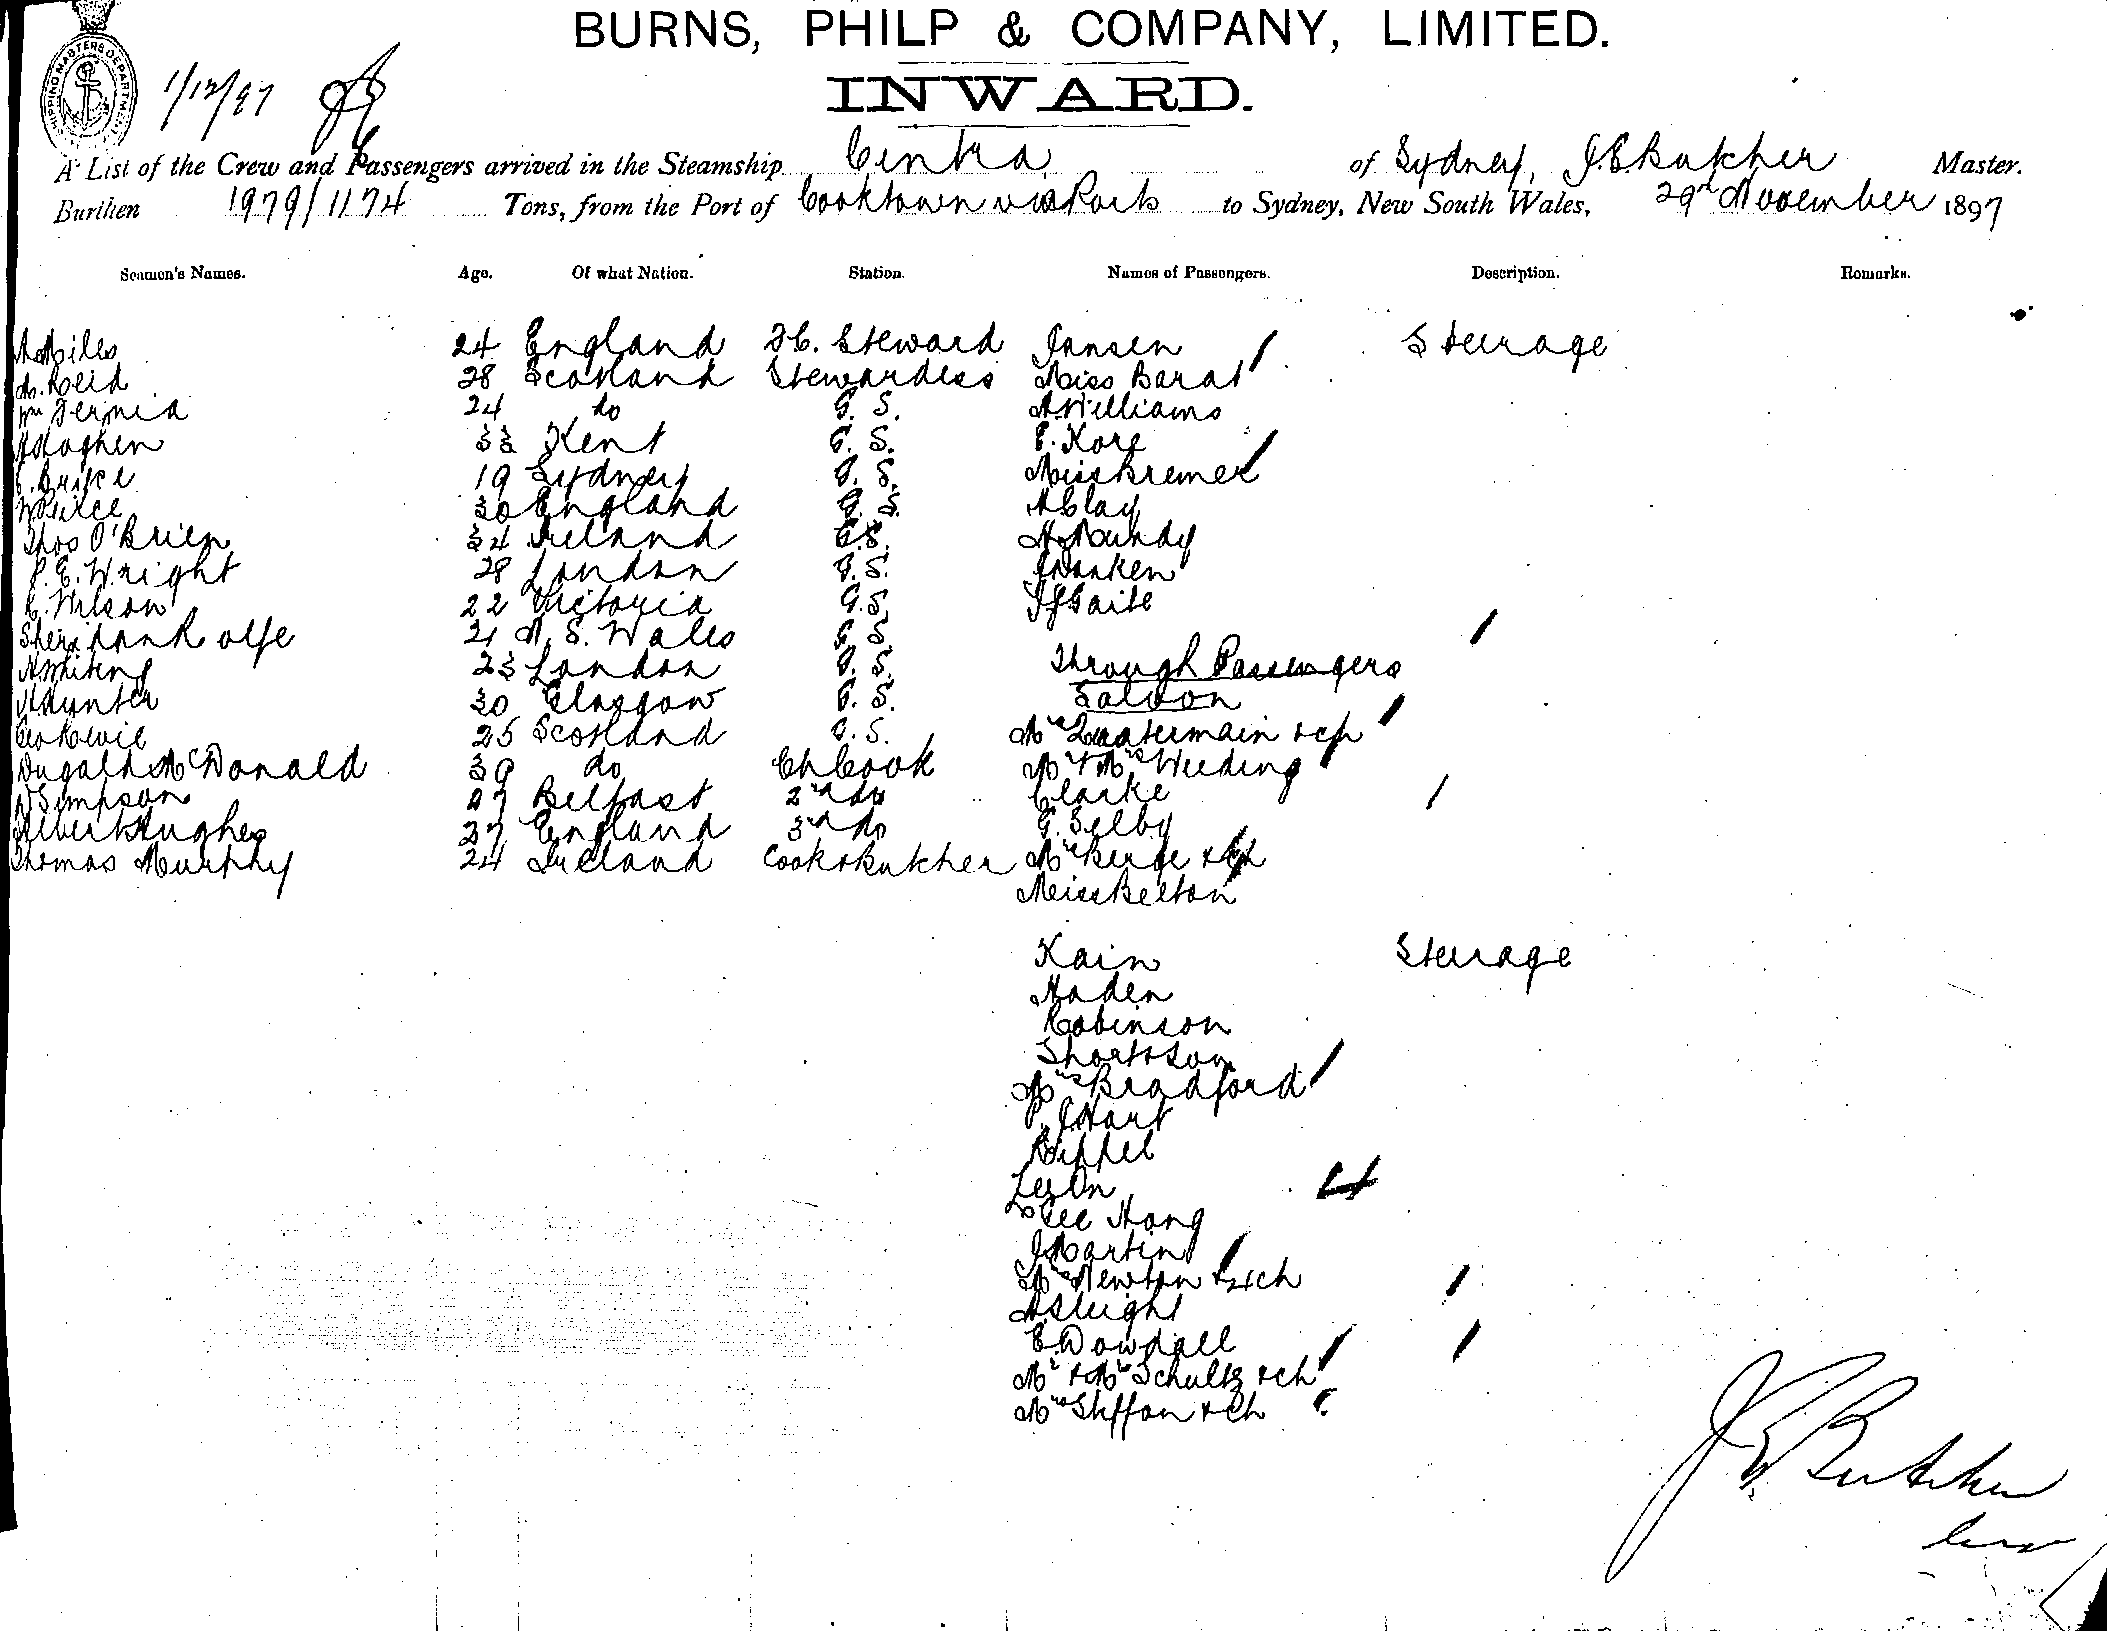 BURNS, PHILP & COMPANY, LIMITED.
INWARD.
SHIPPING MASTERS DEPARTMENT
1/12/97
A List of the Crew and Passengers arrived in the Steamship Cintra of Sydney, J.E. Butcher Master.
Burthen 1979/1174 Tons, from the Port of Cooktown via Ports to Sydney, New South Wales, 29th November 1897
Seamen's Names. Age. Of what Nation. Station. Names of Passengers. Description. Remarks.
A Miles 24 England F.C. Steward Jansen Steerage
A. Reid 28 Scotland Stewardess Miss Barat
Wm Fernia 24 do G. S. A Williams
33 Kent G. S. E. Kore
19 Sydney G. S. Miss Bremer
30 England G. S. A Clay
Thos O'Brien 34 Ireland G.S. H. Mundy
P. E. Wright 28 London G. S.
C. Wilson 22 Victoria G.S. Gaite
Sheridan Rolfe 21 N. S. Wales G S.
A Whiting 23 London G. S. Through Passengers
A Hunter 30 Glasgow G. S. Saloon
25 Scotland G. S. Mrs Quatermain & ch
Dugald McDonald 39 do Ch Cook Mr & Mrs Weeding
Simpson 27 Belfast 2nd do Clarke
Albert Hughes 27 England 3rd do G. Selby
Thomas Murphy 24 Ireland Cook & Butcher Mrs Berge & ch
Miss Belton
Kain Steerage
Haden
Robinson
Short & Son
Mrs Bradford
P. J Hart
Rippel
Lee On 4
Lee Hong
J Martin
Mrs Newton & 4 ch
A Sleight
E. Dowdall
Mr & Mrs Schultz & ch
Mrs Steffan & ch
J E Butcher